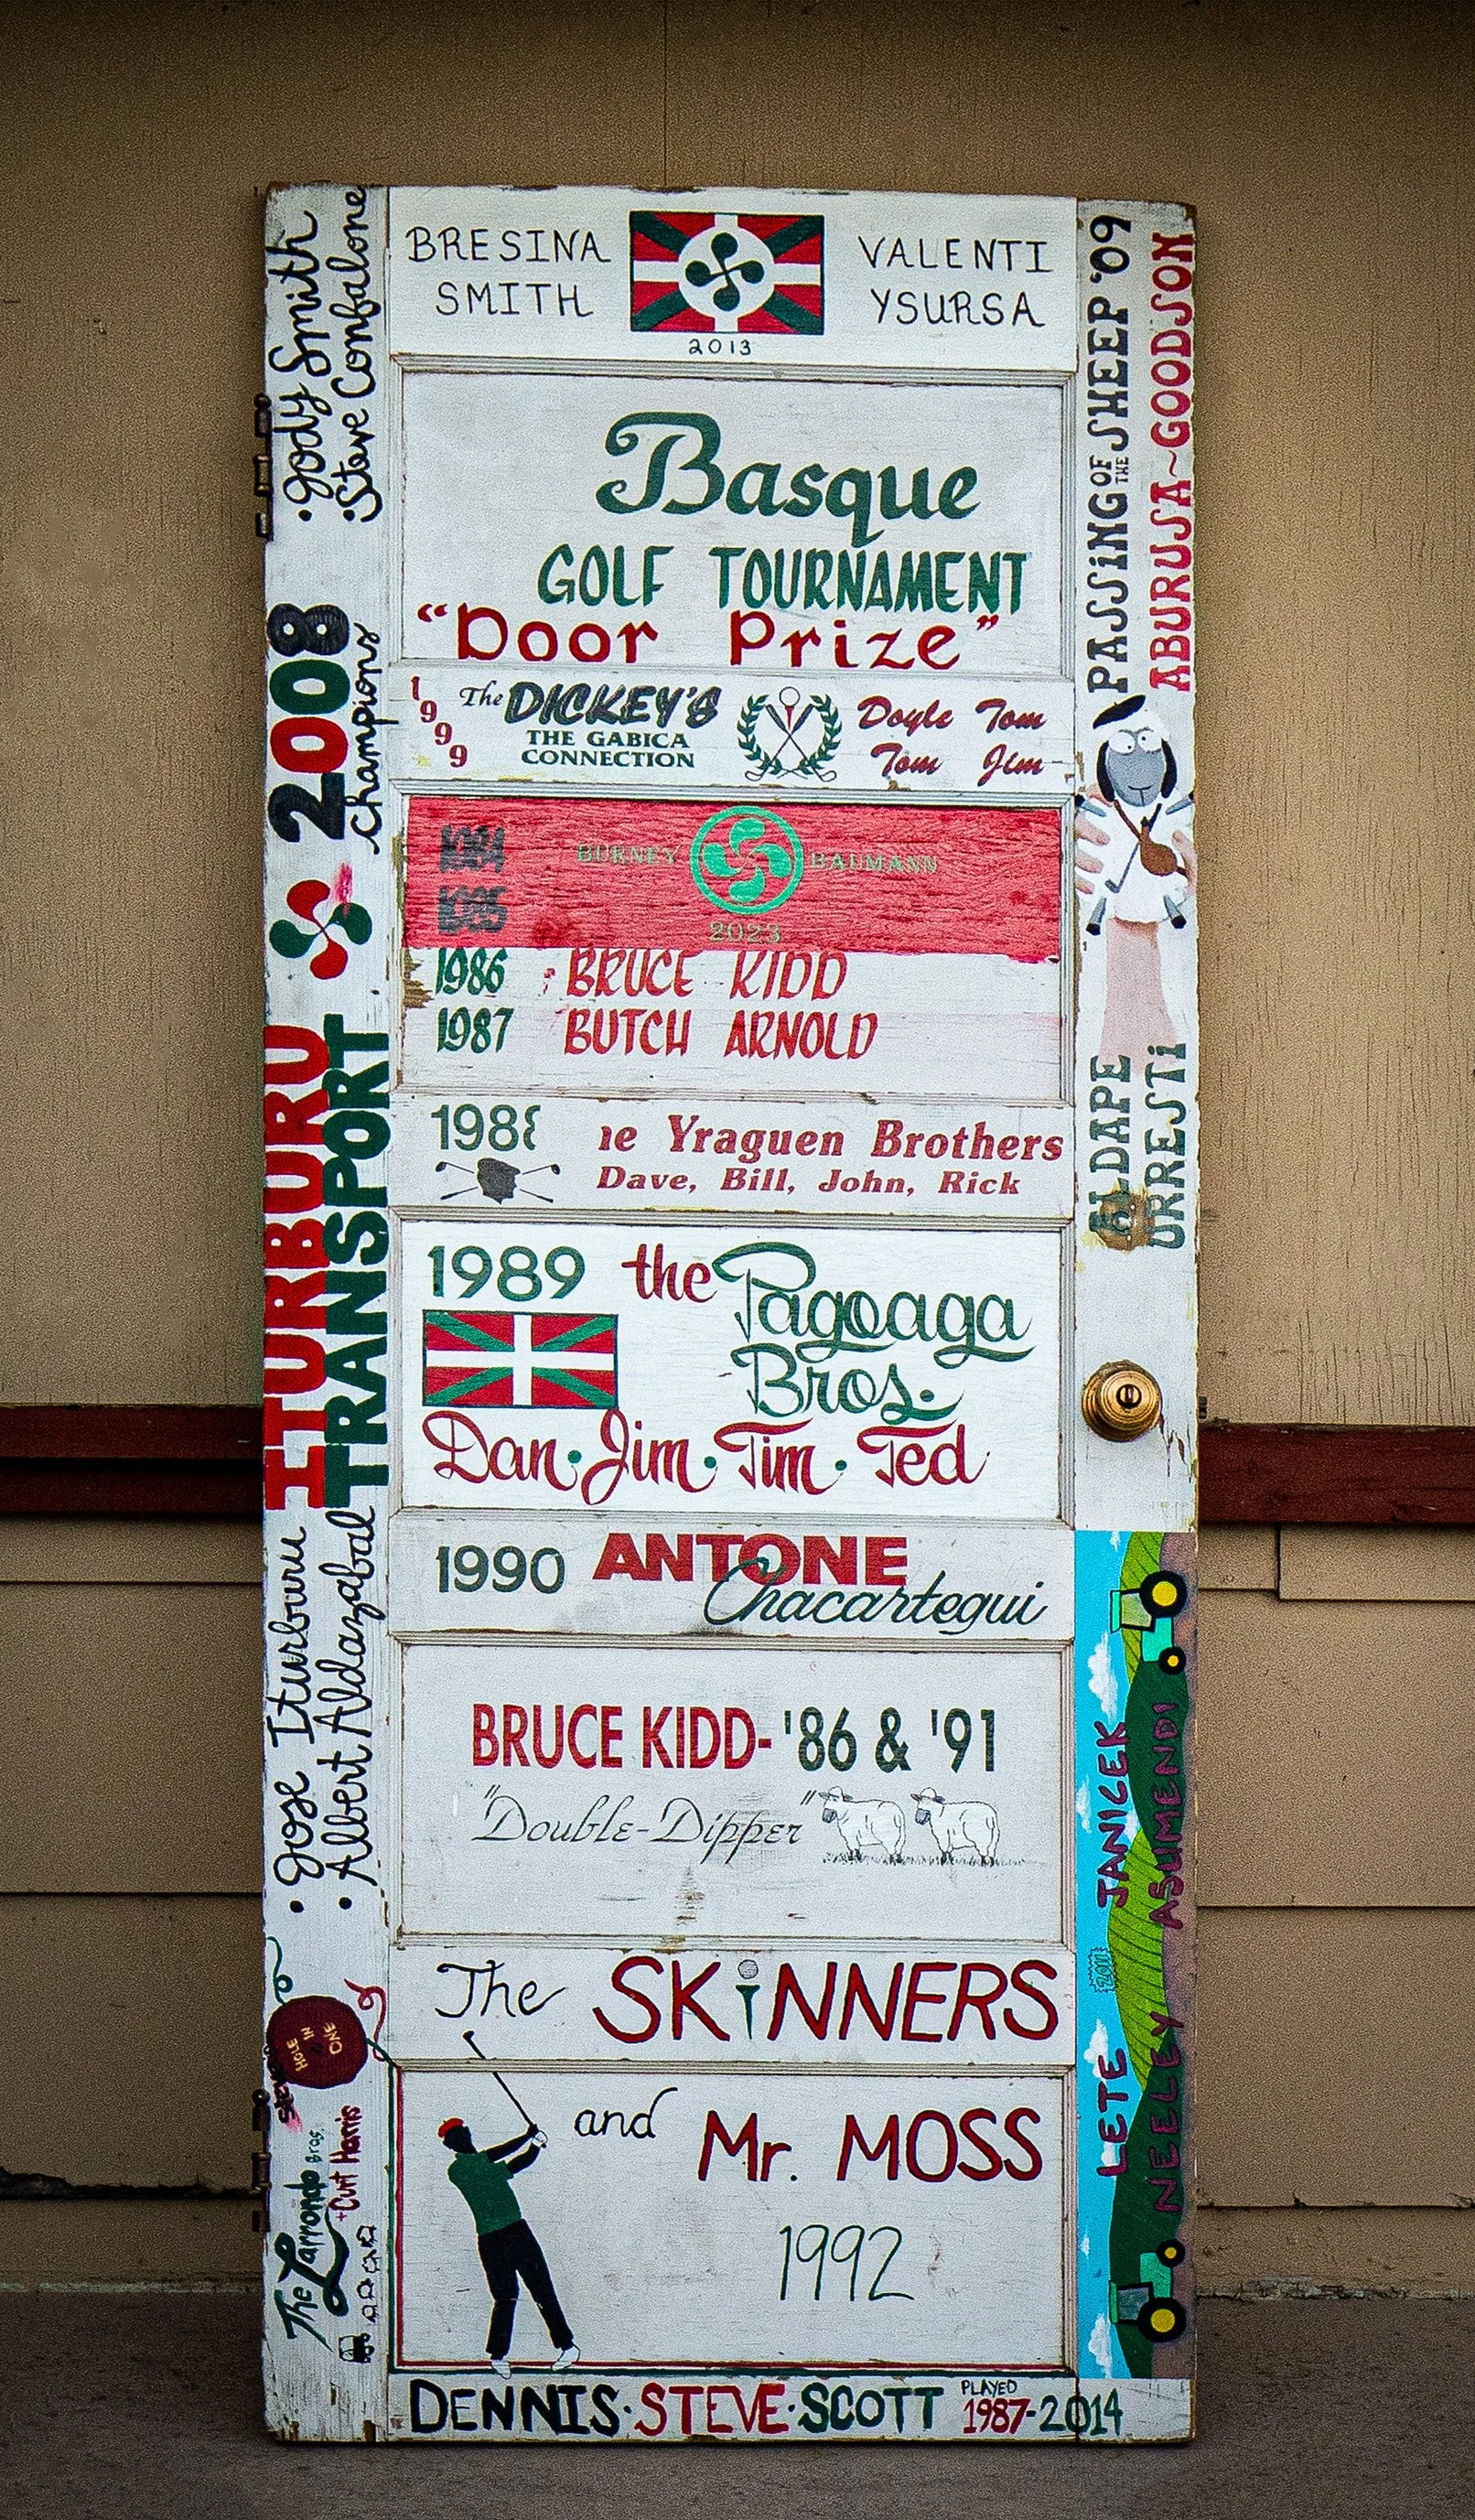 BRESINA
SMITH
VALENTI
YSURSA
2013
Basque
GOLF TOURNAMENT
"Door Prize"
1999
The DICKEY'S
THE GABICA
CONNECTION
Doyle Tom
Tom Jim
1984
1985
BURNEY BAUMANN
2023
1986 BRUCE KIDD
1987 BUTCH ARNOLD
198
Yraguen Brothers
Dave, Bill, John, Rick
1989 the Pagoaga
Bros.
Dan · Jim · Tim · Ted
1990 ANTONE
Chacartegui
BRUCE KIDD- '86 & '91
"Double-Dipper"
The SKiNNERS
and Mr. MOSS
1992
DENNIS · STEVE · SCOTT PLAYED
1987-2014
• Jody Smith
• Steve Confalone
2008
Champions
ITURBURU
TRANSPORT
• Jose Iturburu
• Albert Aldazabal
HOLE
IN
ONE
The Larrondo Bros.
+Curt Harris
PASSiNG OF THE SHEEP '09
ABURUSA~GOODSON
ALDAPE
URRESTi
JANICEK
ASUMENDI
2011
LETE
NEELEY